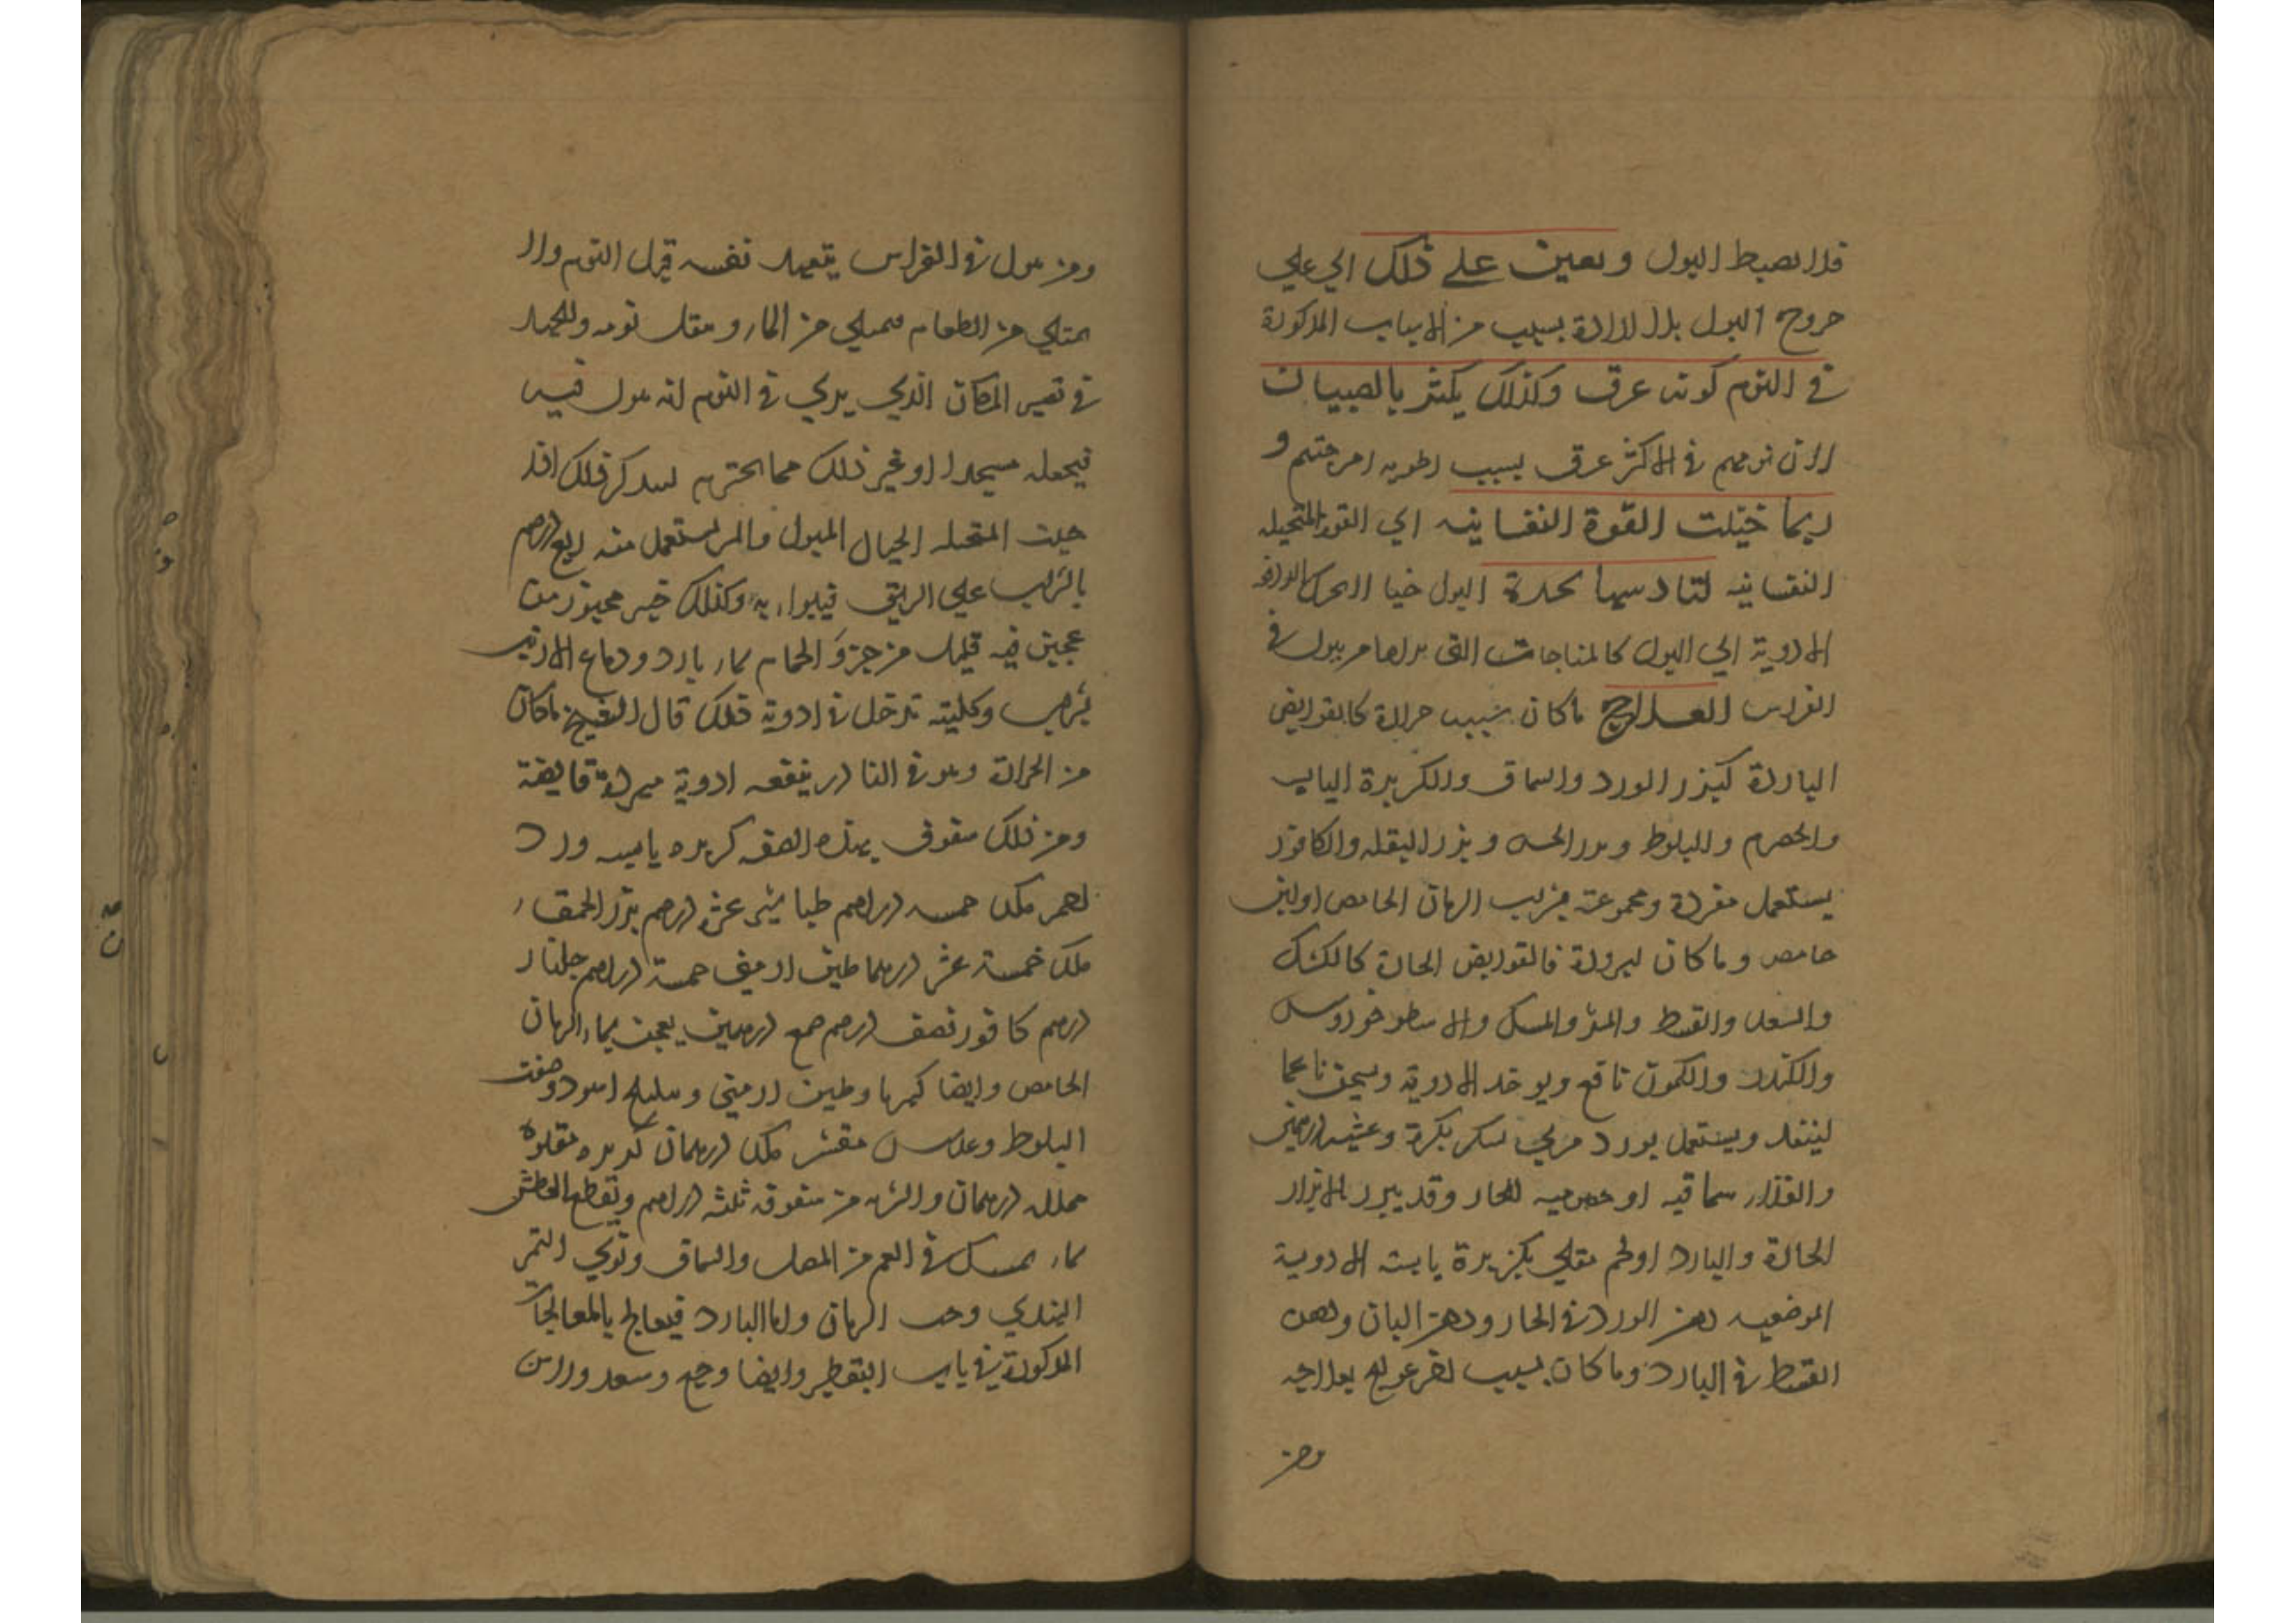 فلا تضبط البول ويعين على ذلك اي علي
خروج البول بلا ارادة بسبب من الاسباب المذكورة
في النوم كونه غرق وكذلك يكثر بالصبيان
لان نومهم في الاكثر غرق بسبب رطوبة امزجتهم و
ربما خيلت القوة النفسانيه اي القوة المتخيله
النفسانيه لتاديها بحدة البول خيالا تحرك الدافعة
الادوية الي البول كالمناجات التي يراها من يبول في
الفراش العلاج ما كان بسبب حرارة كالقوابض
الباردة كبزر الورد والسماق والكزبرة اليابسه
والحصرم والبلوط وبزر الخس وبزر البقله والكافور
يستعمل مفردة ومجموعة بشراب الرمان الحامض او لبن
حامض وما كان لبرودة فالقوابض الحارة كالكشك
والسعد والقسط والمر والمسك والاسطوخودوس
والكندر والكمون نافع ويوخذ الادوية ويسحق ناعما
لينفذ ويستعمل بورد مربي بسكر بكرة وعشيه درهمين
والغذاء سماقيه او حصرميه للحار وقد يبزر بالابزار
الحارة والبارد او لحم مقلي بكزبرة يابسة الادوية
الموضعيه دهن الورد في الحار ودهن البان ودهن
القسط في البارد وما كان بسبب اخر عولج بعلاجه
ومن
ومن يبول في الفراش يتعهد نفسه قبل النوم ولا
يمتلي من الطعام فيمتلي من الماء ويثقل نومه وليجهد
في تغير المكان الذي يري في النوم انه يبول فيه
فيجعله مسجدا او غير ذلك مما يحترم ليتذكر ذلك اذا
خيلت المتخيله الخيال المبول والمر يستعمل منه ربع درهم
بالشراب علي الريق فيبرا به وكذلك خبز مخبوز من
عجين فيه قليل من خرو الحمام بماء بارد ودماغ الارنب
بشراب وكليته تدخل في ادوية ذلك قال الشيخ ما كان
من الحرارة وهو في النادر ينفعه ادوية مبردة قابضة
ومن ذلك سفوف بهذه الصفه كزبره يابسه ورد
احمر مكد خمسه دراهم طباشير عشره درهم بزر الحمقاء
مكد خمسة عشر درهما طين ارميني خمسة دراهم جلنار
درهم كافور نصف درهم صمغ درهمين يعجن بماء الرمان
الحامض وايضا كهربا وطين ارميني وهليلج اسود وجفت
البلوط وعدس مقشر مكد درهمان كزبره مقلوه
مخلله درهمان والشربه من سفوفه ثلثه دراهم ويقطع العطش
بماء يمسك في الفم من المصل والسماق ونوي التمر
الهندي وحب الرمان واما البارد فيعالج بالمعالجات
المذكورة في باب التقطير وايضا وج وسعد وراسن